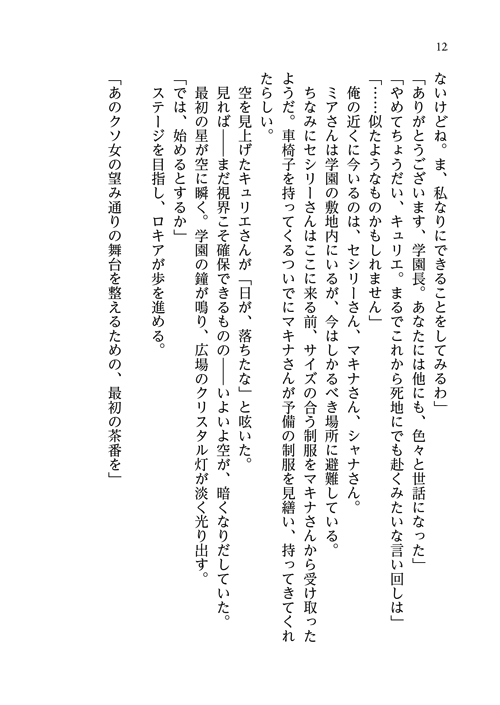 12
ないけどね。ま、私なりにできることをしてみるわ」
「ありがとうございます、学園長。あなたには他にも、色々と世話になった」
「やめてちょうだい、キュリエ。まるでこれから死地にでも赴くみたいな言い回しは」
「……似たようなものかもしれません」
俺の近くに今いるのは、セシリーさん、マキナさん、シャナさん。
ミアさんは学園の敷地内にいるが、今はしかるべき場所に避難している。
ちなみにセシリーさんはここに来る前、サイズの合う制服をマキナさんから受け取った
ようだ。車椅子を持ってくるついでにマキナさんが予備の制服を見繕い、持ってきてくれ
たらしい。
空を見上げたキュリエさんが「日が、落ちたな」と呟いた。
見れば――まだ視界こそ確保できるものの――いよいよ空が、暗くなりだしていた。
最初の星が空に瞬く。学園の鐘が鳴り、広場のクリスタル灯が淡く光り出す。
「では、始めるとするか」
ステージを目指し、ロキアが歩を進める。
「あのクソ女の望み通りの舞台を整えるための、最初の茶番を」